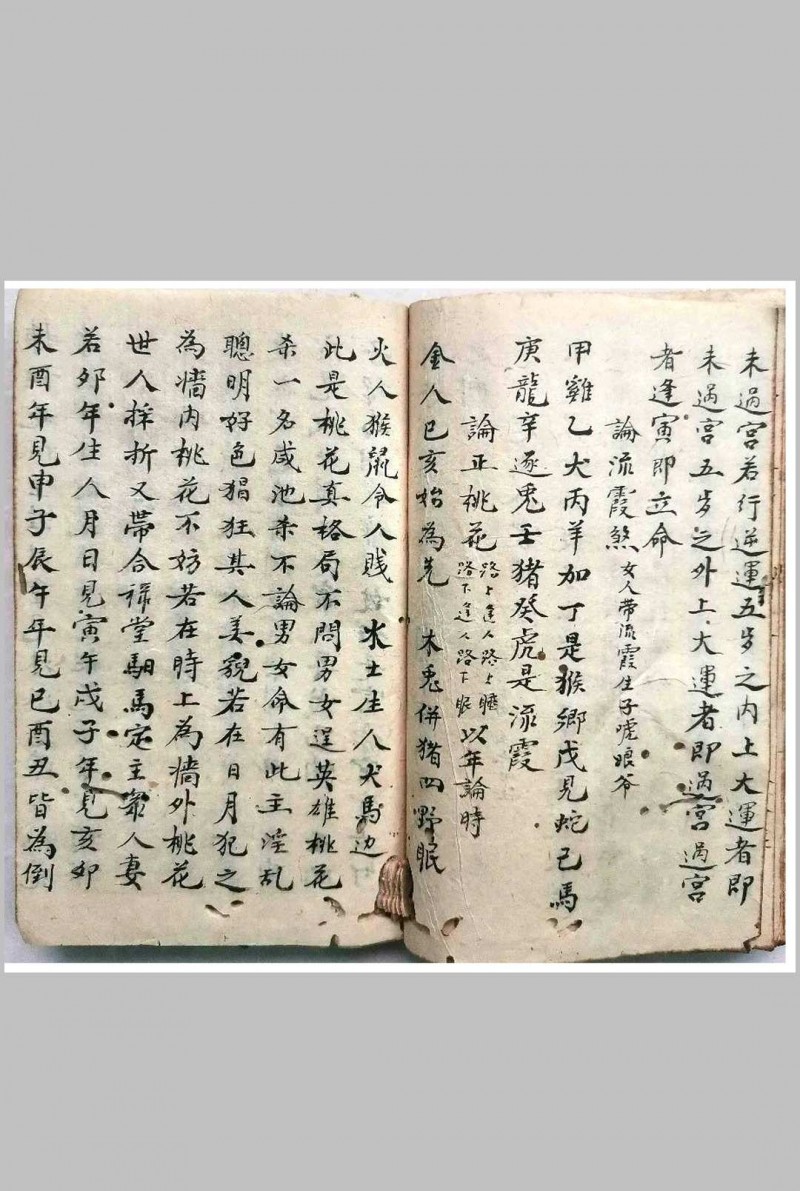 未過宮若行逆運五岁之內上大運者即
未過宮五岁之外上大運者即過宮過宮
者逢寅即立命
論流霞煞 女人带流霞生子唬娘爷
甲雞乙犬丙羊加丁是猴鄉戊見蛇己馬
庚龍辛逐兎壬猪癸虎是流霞
論正桃花 路上逢人路上
路下逢人路下眠 以年論時
金人巳亥始為先 木兎併猪四野眠
火人猴鼠令人贱 水土生人犬馬边
此是桃花真格局不問男女逞英雄桃花
杀一名咸池杀不論男女命有此主淫乱
聰明好色猖狂其人美貌若在日月犯之
為墻內桃花不妨若在時上為墻外桃花
世人採折又帶合祿堂馹馬定主衆人妻
若夘年生人月日見寅午戍子年見亥夘
未酉年見申子辰午年見巳酉丑皆為倒